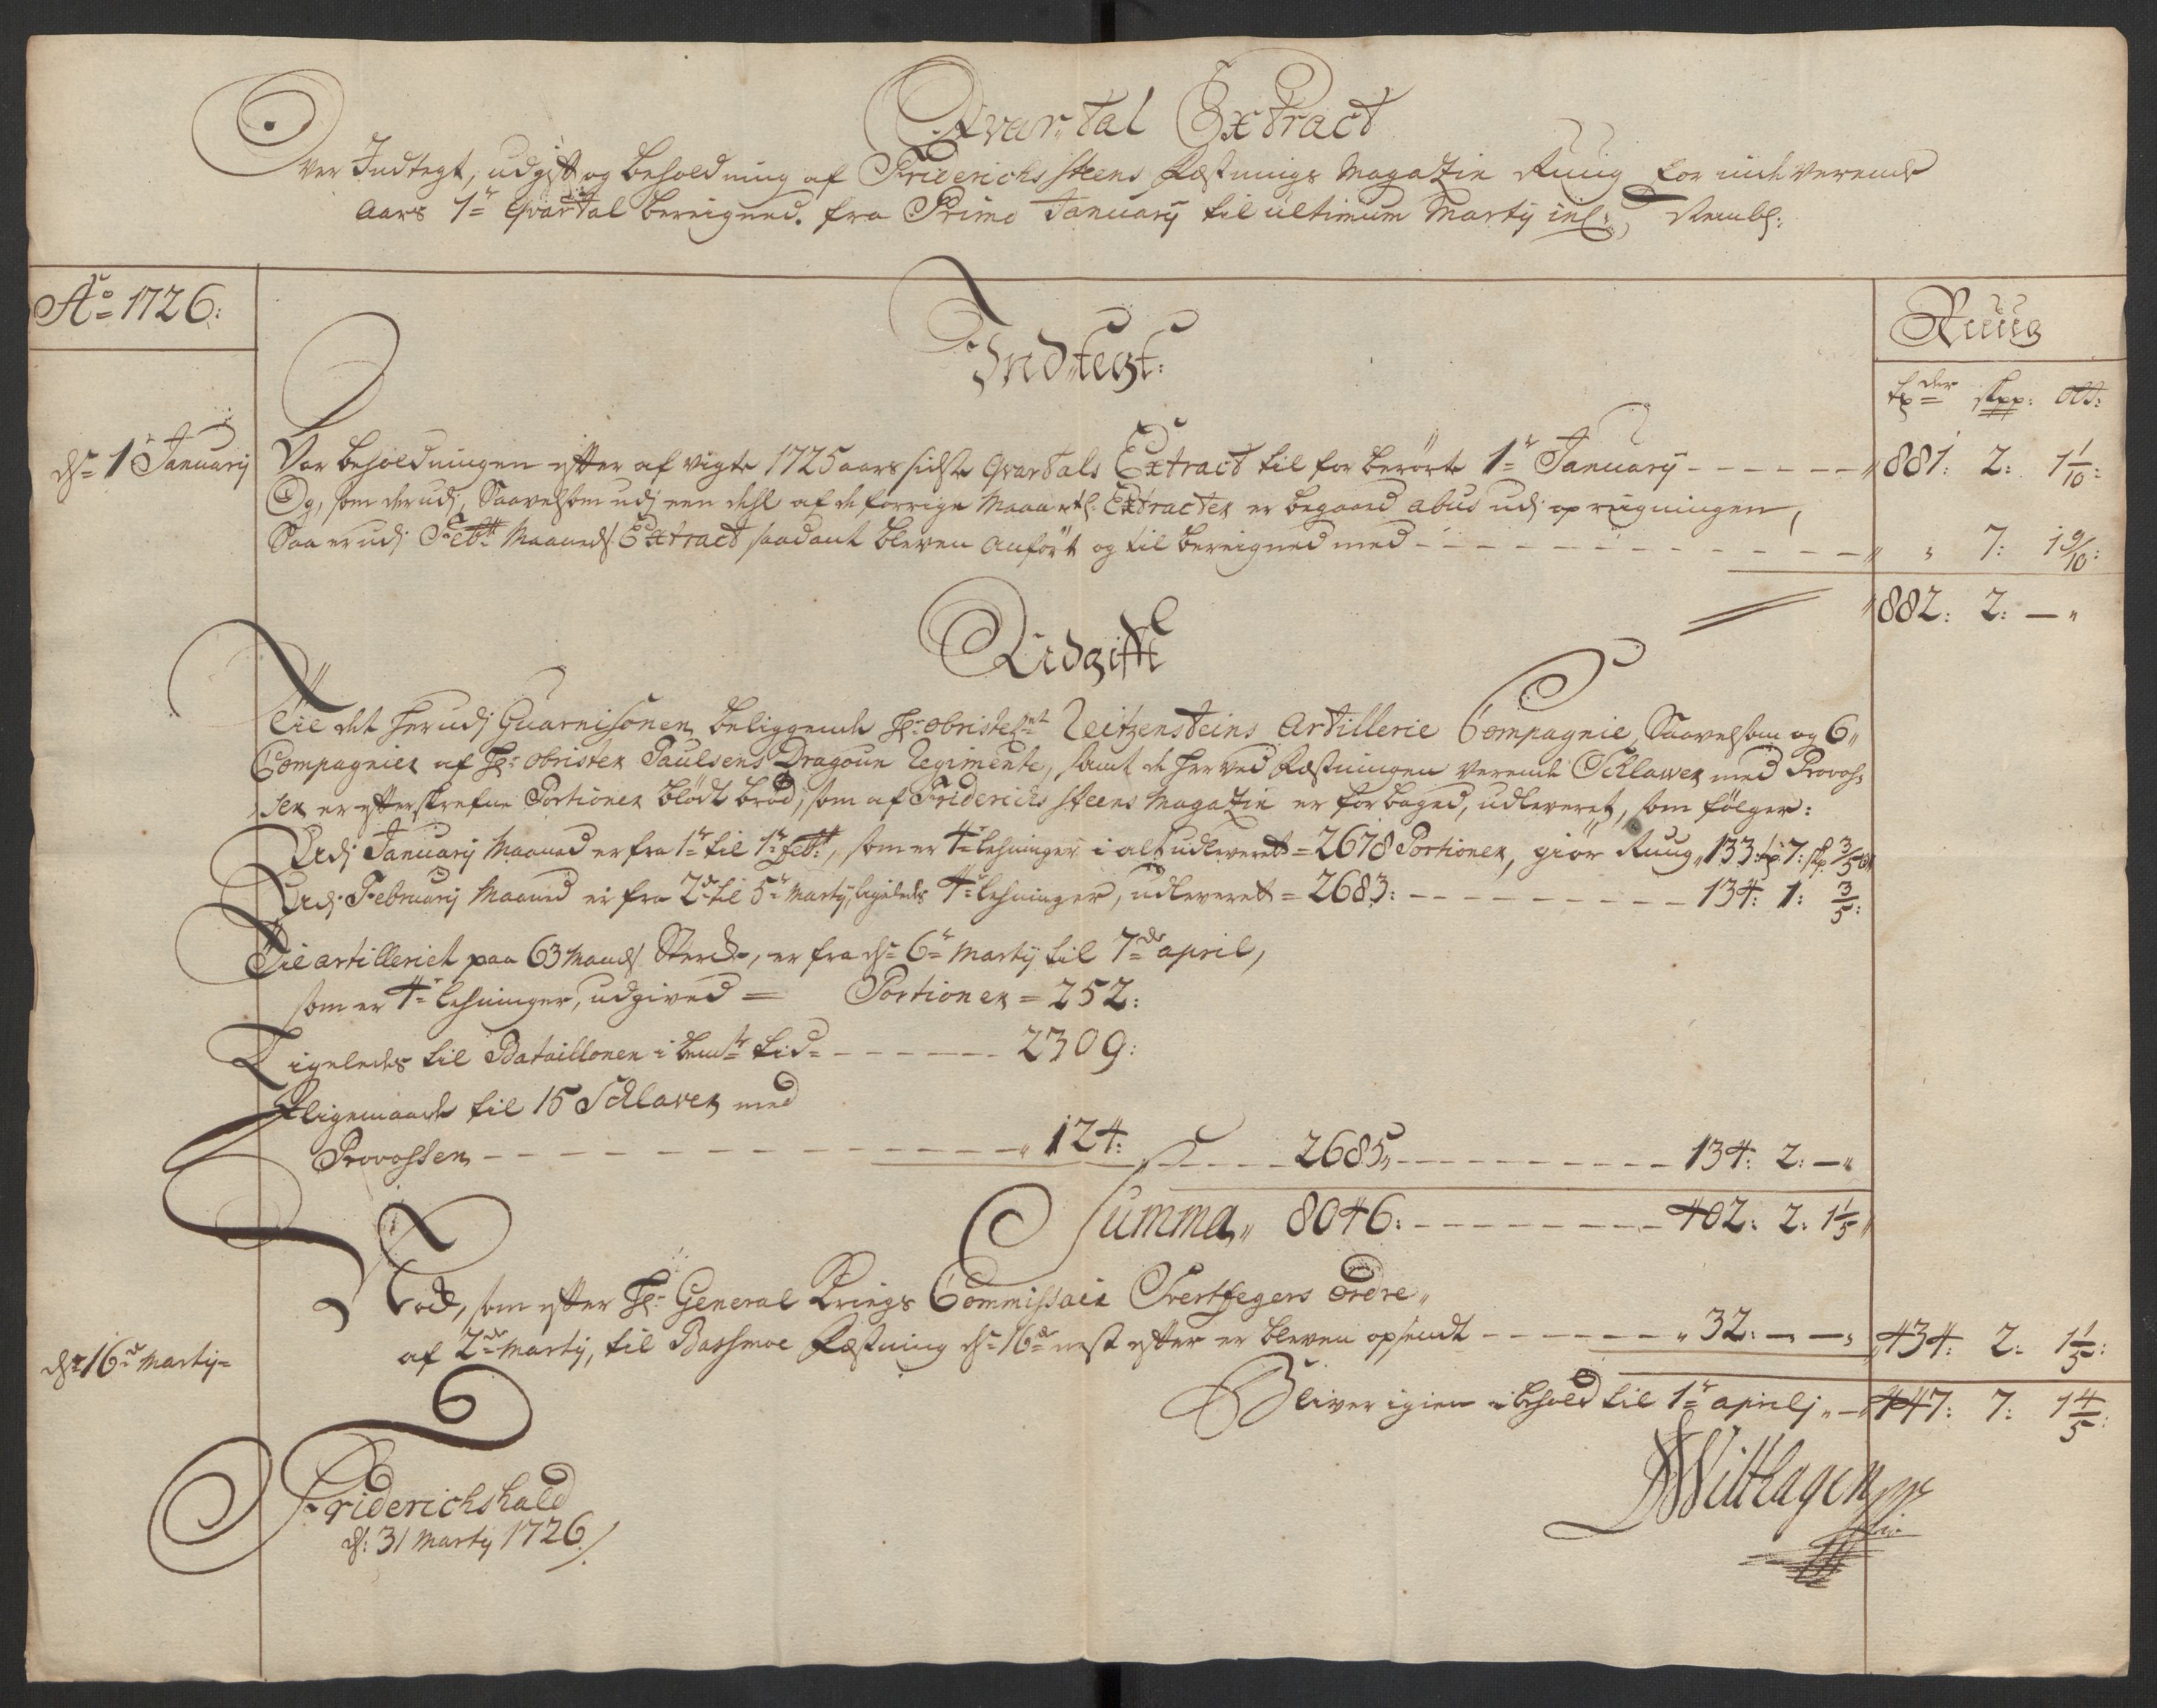 Qvartal Extract
Over Indtegt, udgift og beholdning af Friderichssteens Fæstnings Magazin Ruug for indeværende
Aars 1te Qvartal bereigned. fra Primo January til ultimum Marty incl:
Ao 1726:
Indtegt:
Ruug
tøder skpp: ott:
ds 1te January
Var beholdningen efter afvigte 1725 aars sidste Qvartals Extract til forberørte 1te January - - - - - 881: 2: 1 1/10:
Og, som derudj, Saavelsom udj een dehl af de forrige Maantl: Extracter er begaaed abus udj opreigningen,
Saa er udj Febr: Maaneds Extract saadant bleven anført og til bereigned med - - - - - " 7: 1 9/10:
882: 2: — "
Udgifft
Til det herudj Guarnisonen beliggende Hr: Obristelnt Zeitzensteins Artillerie Compagnie, Saavelsom og 6
Compagnier af Hr: Obrister Paulsens Dragoun Regimente, samt de herved Fæstningen værende Schlawer med Provos-
sen er efterskrefne Portioner blødt brød, som af Friderichssteens Magazin er forbaged, udleveret, som følger:
Udj January Maaned er fra 1te til 1te Febr:, som er 4re lefninger i alt udleveret = 2678 Portioner, giør Ruug 133: tø: 7: skp. 3/5 ott
Udj February Maaned er fra 2de til 5te Marty, ligeledes 4re lefninger, udleveret = 2683: - - - - - 134: 1: 3/5:
Til artilleriet paa 63 Mands Sterke, er fra ds 6te Marty til 7de april,
som er 4re lefninger, udgived = Portioner = 252:
Ligeledes til Bataillonen i bemte tid - - - - - 2309:
I ligemaade til 15 Schlaver med
Provossen - - - - - 124: - - - 2685, - - - - - 134: 2: — "
Summa, 8046: - - - - - 402: 2: 1 1/5
Nock, som efter Hr: General Krigs Commissair Svertfegers ordre
ds 16de Marty
af 2de Marty, til Bassmoe Fæstning ds 16de nest efter er bleven opsendt - - - - - 32: — — 434: 2: 1 1/5:
Bliver igien i behold til 1te aprilj - 447: 7: 1 4/5:
Friderichshald
ds: 31 Marty 1726
Witthagen